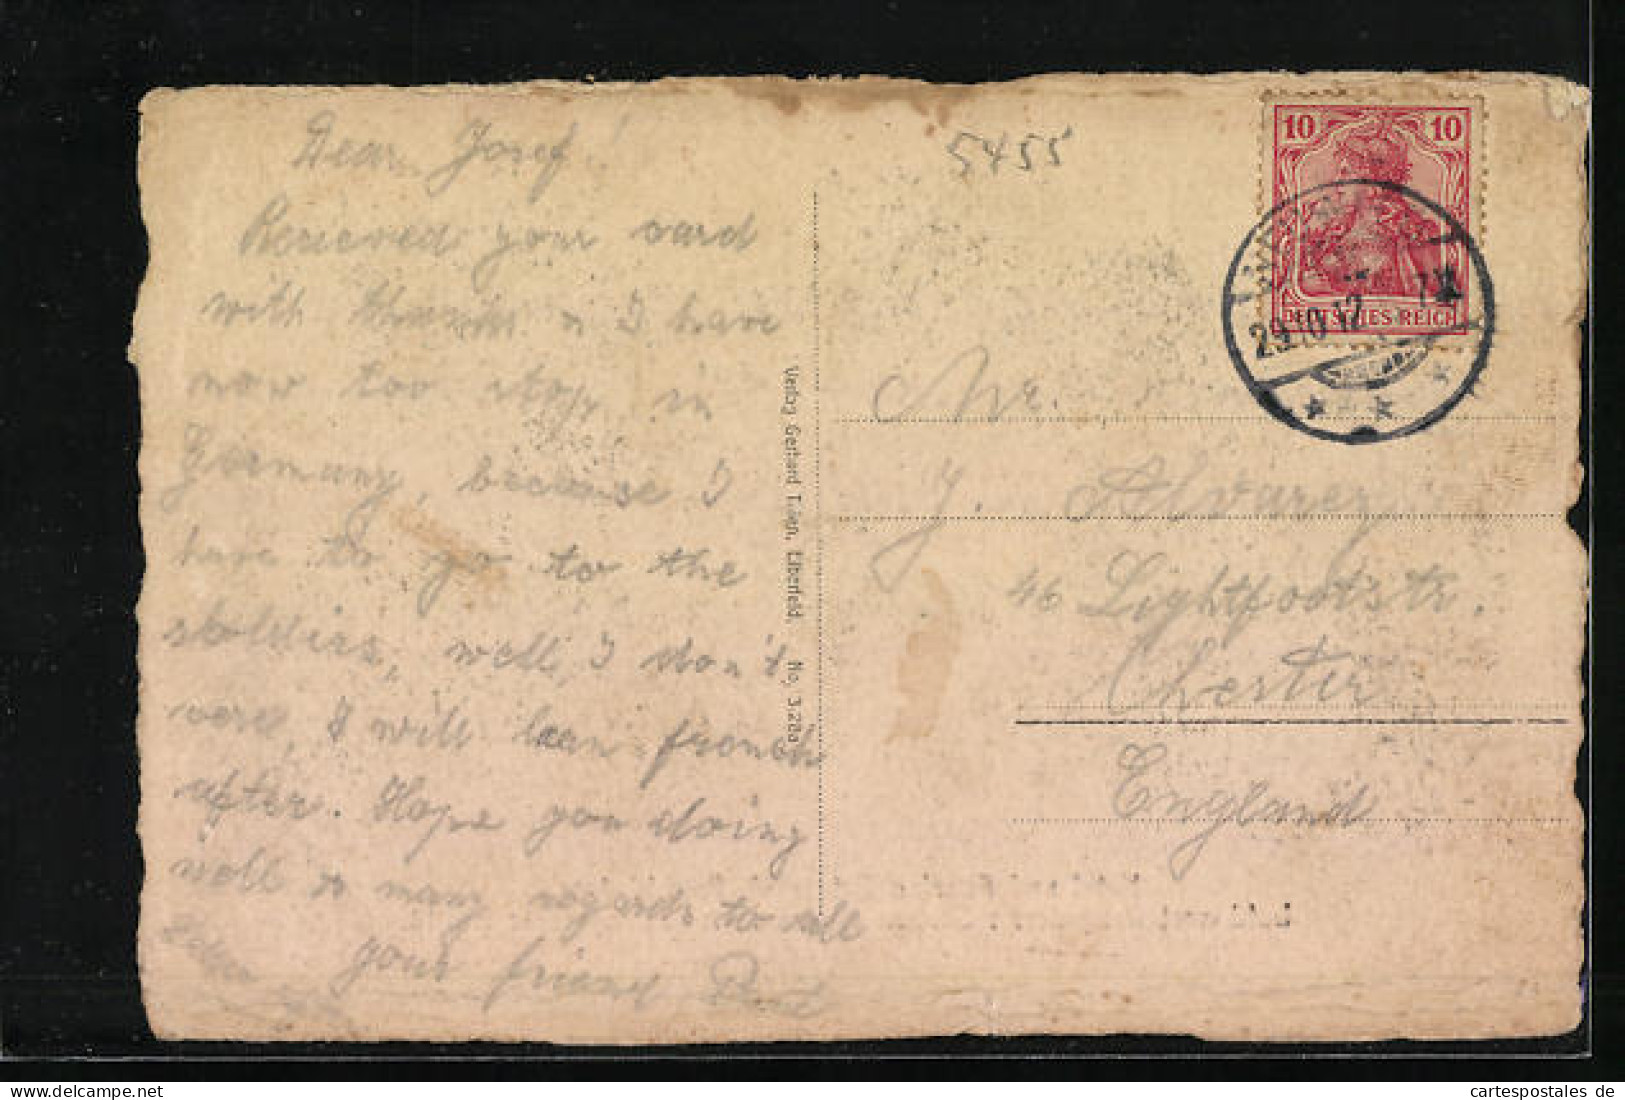 Dear Josef!
Recieved your card
with thanks n I have
now too stop in
Germany, because I
have to go to the
soldiers, well, I don't
care, I will lean french
after. Hope you doing
well n many regards to all
your friend
5455
10 10
DEUTSCHES REICH
29.10.12
Mr.
J. Alvarez
46 Lightfootstr.
Chester
England
Verlag Gerhard Tilen, Elberfeld. No. 3.20a
Delcampe.net
cartespostales de